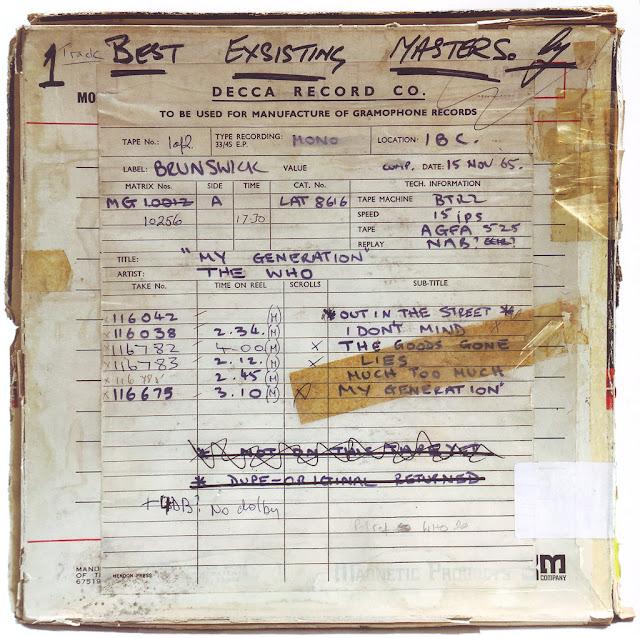 1 Track BEST EXSISTING MASTERS. by
MO
DECCA RECORD CO.
TO BE USED FOR MANUFACTURE OF GRAMOPHONE RECORDS
TAPE No.: 1 of 2 TYPE RECORDING: 33/45 E.P. MONO LOCATION: IBC.
LABEL: BRUNSWICK VALUE COMP. DATE: 15 NOV 65.
MATRIX Nos. SIDE TIME CAT. No. TECH. INFORMATION
MG A LAT 8616 TAPE MACHINE BTR2
10256 17.30 SPEED 15 ips
TAPE AGFA 525
REPLAY NAB?
TITLE: "MY GENERATION"
ARTIST: THE WHO
TAKE No. TIME ON REEL SCROLLS SUB-TITLE
x116042 (M) * OUT IN THE STREET *
x116038 2.34. (M) I DON'T MIND x
x116782 4.00 (M) x THE GOODS GONE
x116783 2.12. (M) x LIES
x116 2.45 (M) MUCH TOO MUCH
x116675 3.10 (M) x MY GENERATION"
* NOT ON THIS TAPE YET
* DUPE-ORIGINAL RETURNED
No dolby
MAND
OF T
67519
HENDON PRESS
MAGNETIC PRODUCTS
3M
COMPANY